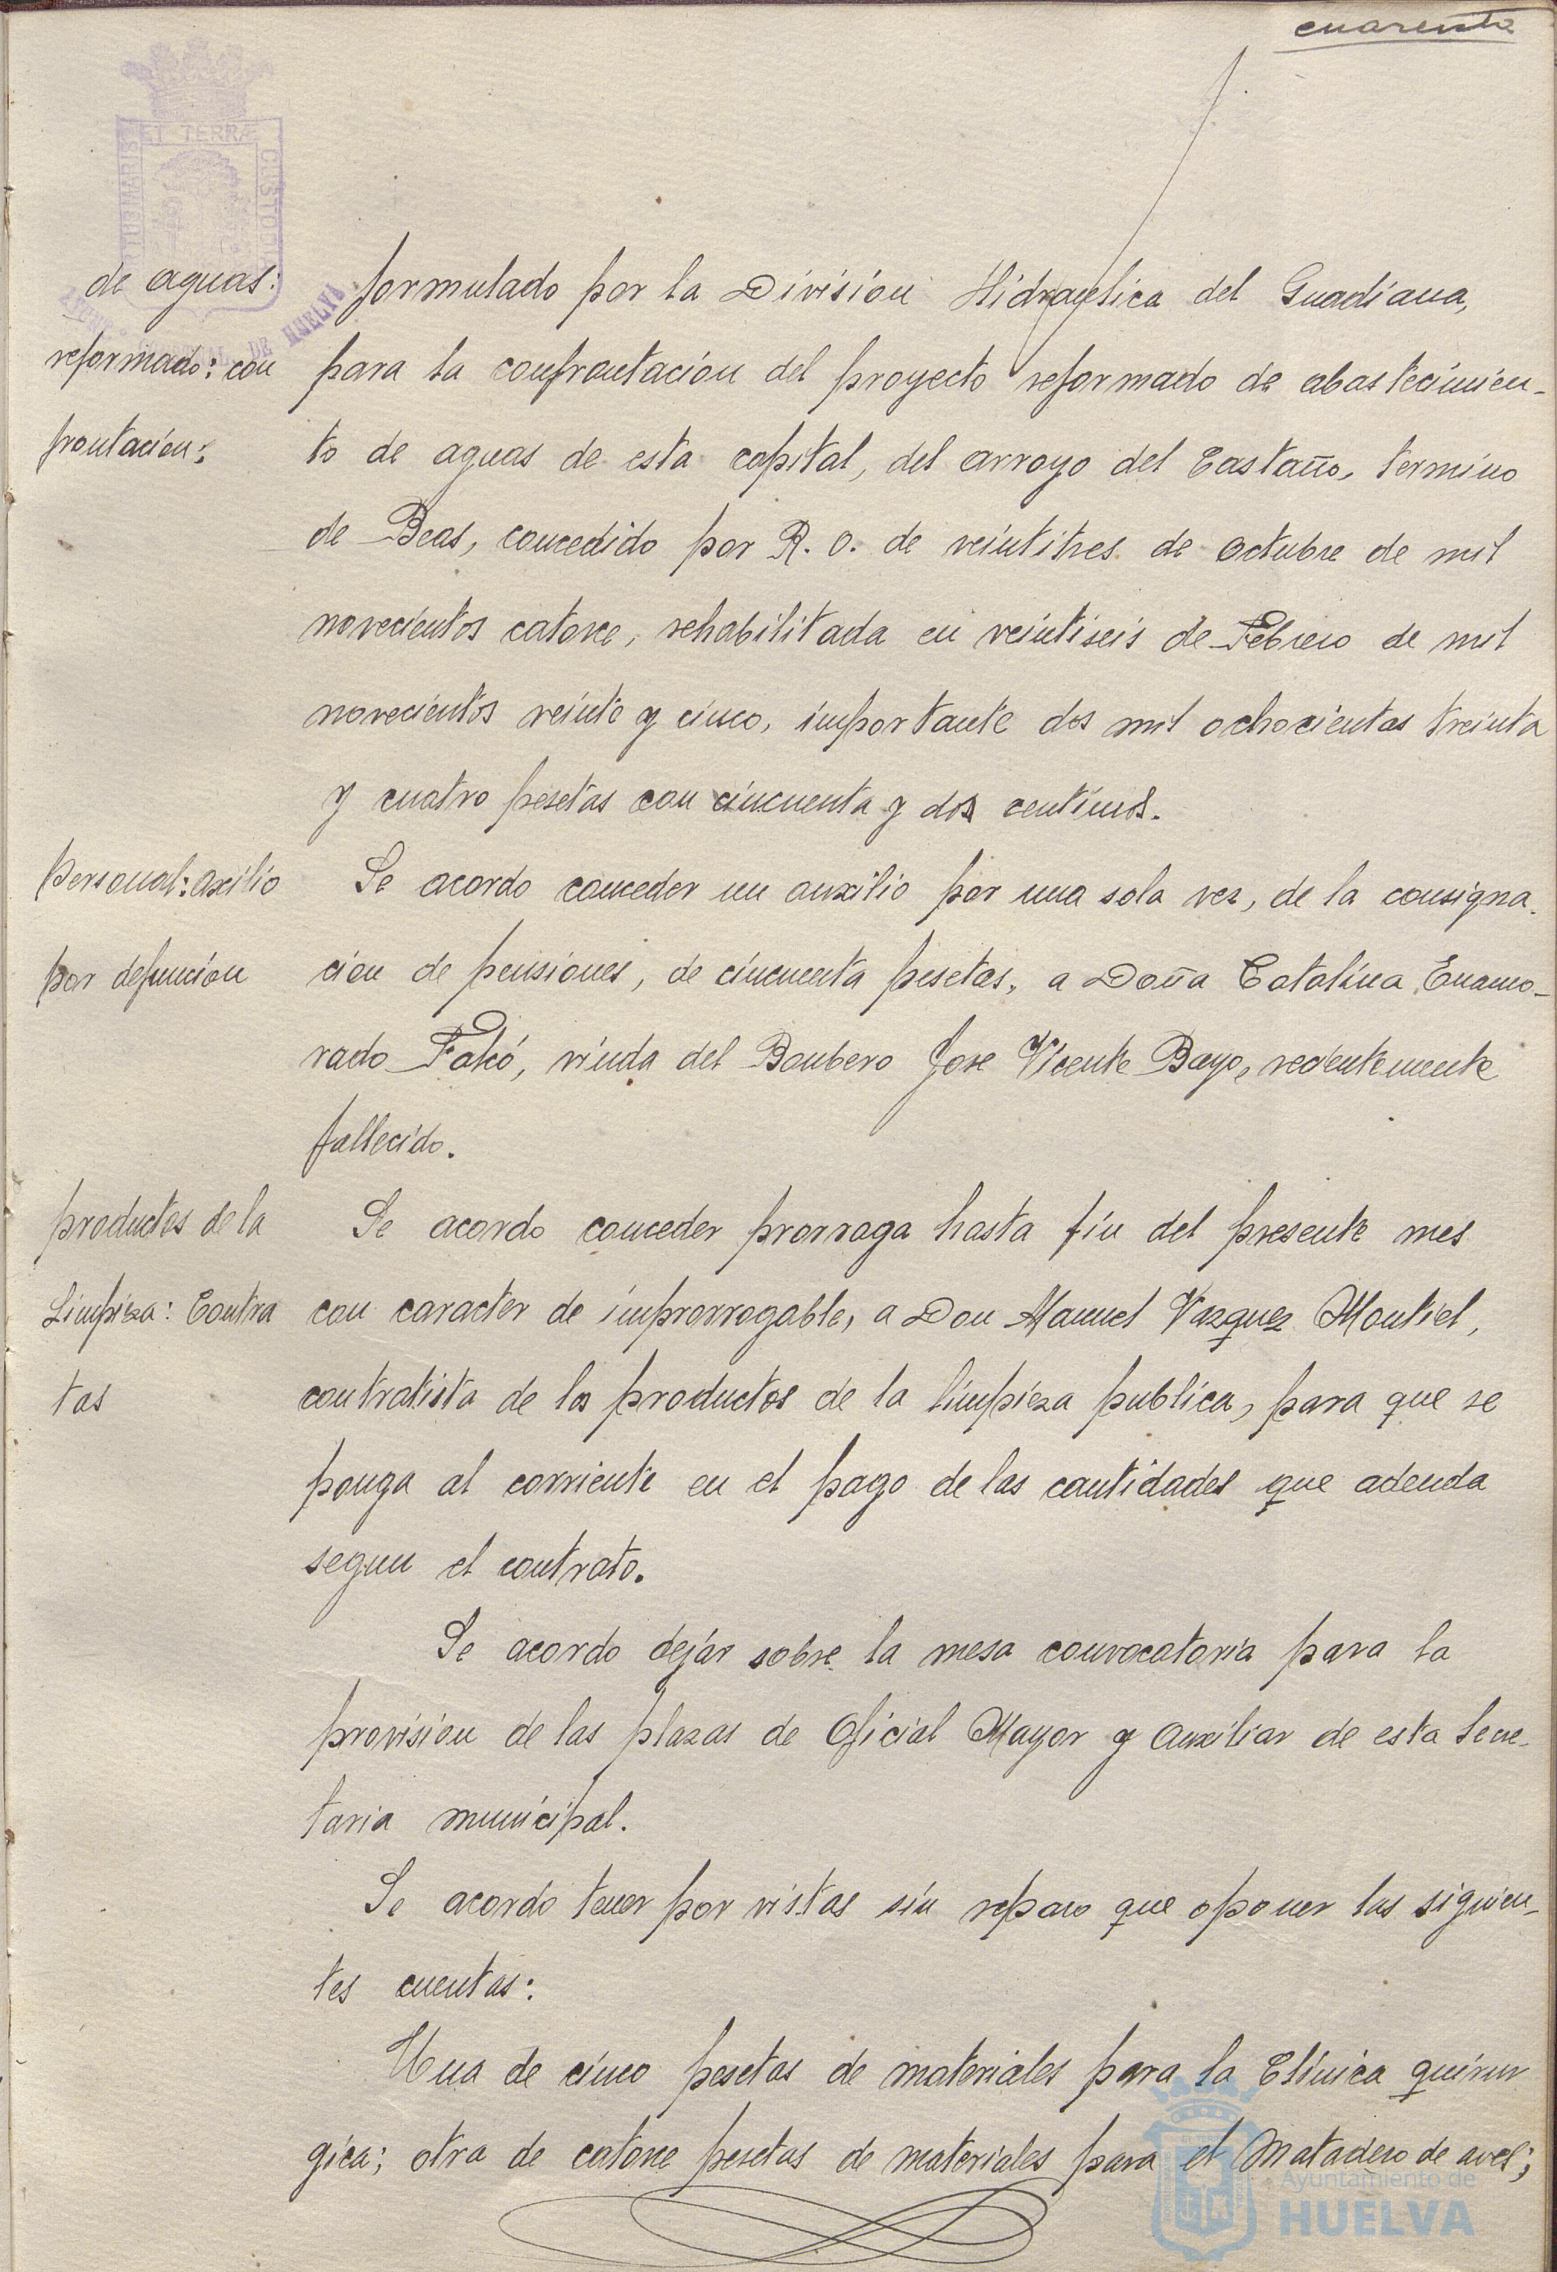 cuarenta
ET TERRÆ
CUSTO
DE HUELVA
de aguas:
reformado: con
frontacion:
formulado por la Division Hidraulica del Guadiana,
para la confrontacion del proyecto reformado de abastecimien-
to de aguas de esta capital, del arroyo del Castaño, termino
de Beas, concedido por R. O. de veintitres de octubre de mil
novecientos catorce, rehabilitada en veintiseis de Febrero de mil
novecientos veinte y cinco, importante dos mil ochocientas treinta
y cuatro pesetas con cincuenta y dos centimos.
Personal: axilio
por defuncion
Se acordo conceder un auxilio por una sola vez, de la consigna-
cion de pensiones, de cincuenta pesetas, a Doña Catalina Enamo-
rado Falcó, viuda del Bombero Jose Vicente Bayo, recientemente
fallecido.
productos de la
Limpieza: Contra
tas
Se acordo conceder prorroga hasta fin del presente mes
con caracter de improrrogable, a Don Manuel Vazquez Montiel,
contratista de los productos de la limpieza publica, para que se
ponga al corriente en el pago de las cantidades que adeuda
segun el contrato.
Se acordo dejar sobre la mesa convocatoria para la
provision de las plazas de Oficial Mayor y Auxiliar de esta Secre-
taria municipal.
Se acordo tener por vistas sin reparo que oponer las siguien-
tes cuentas:
Una de cinco pesetas de materiales para la Clinica quirur
gica; otra de catorce pesetas de materiales para el Matadero de aves;
Ayuntamiento de
HUELVA